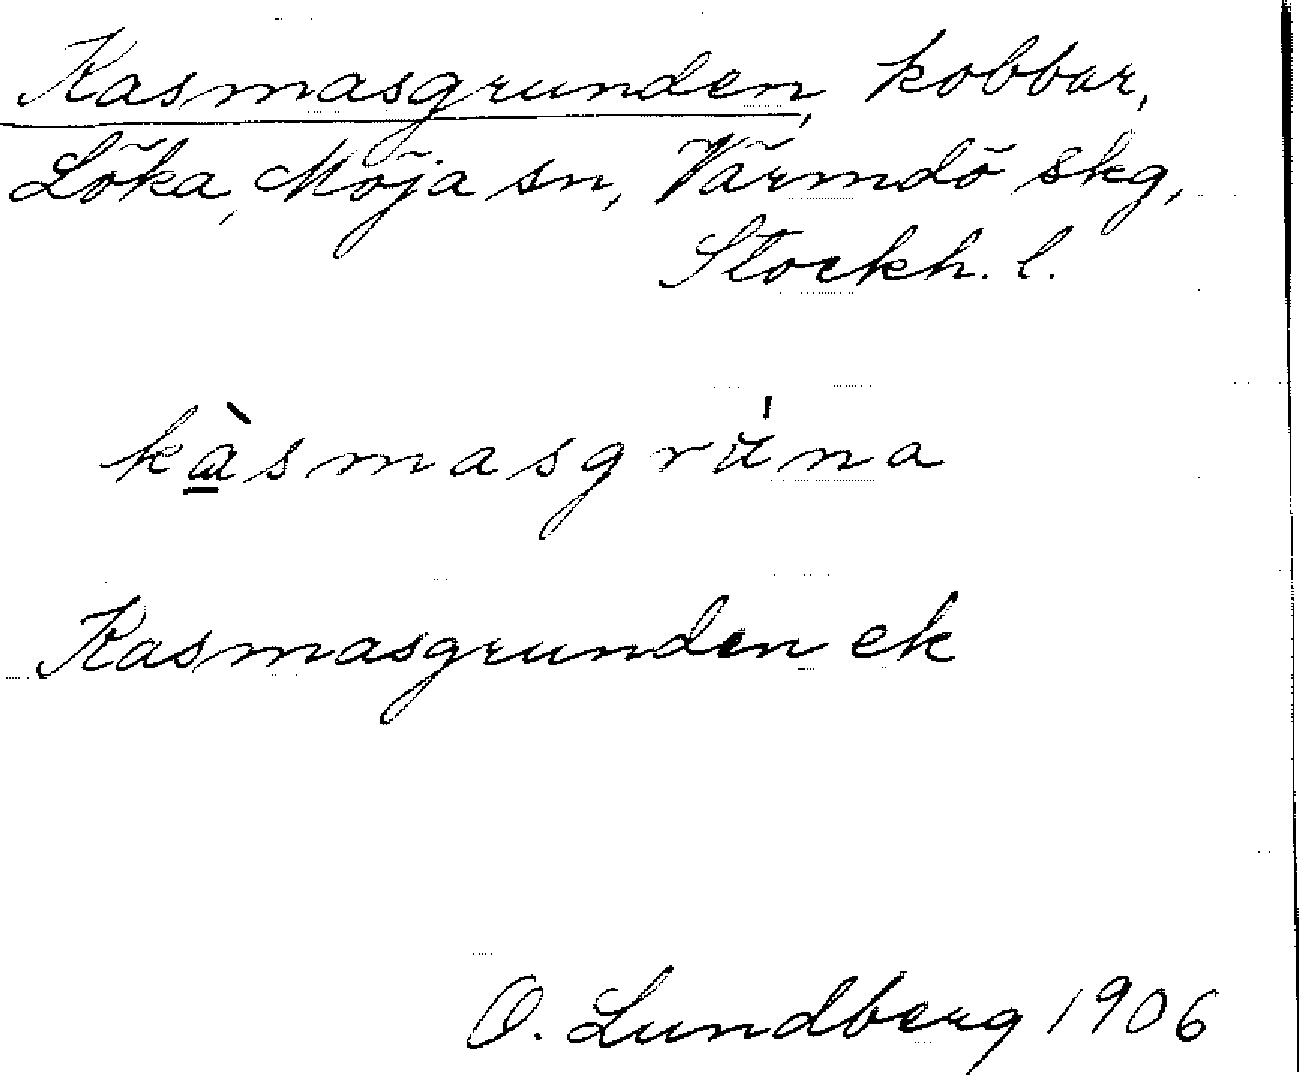 Kasmasgrunden, kobbar,
Löka, Möja sn, Värmdö skg,
Stockh. l.
kàsmasgrúna
Kasmasgrunden ek
O. Lundberg 1906